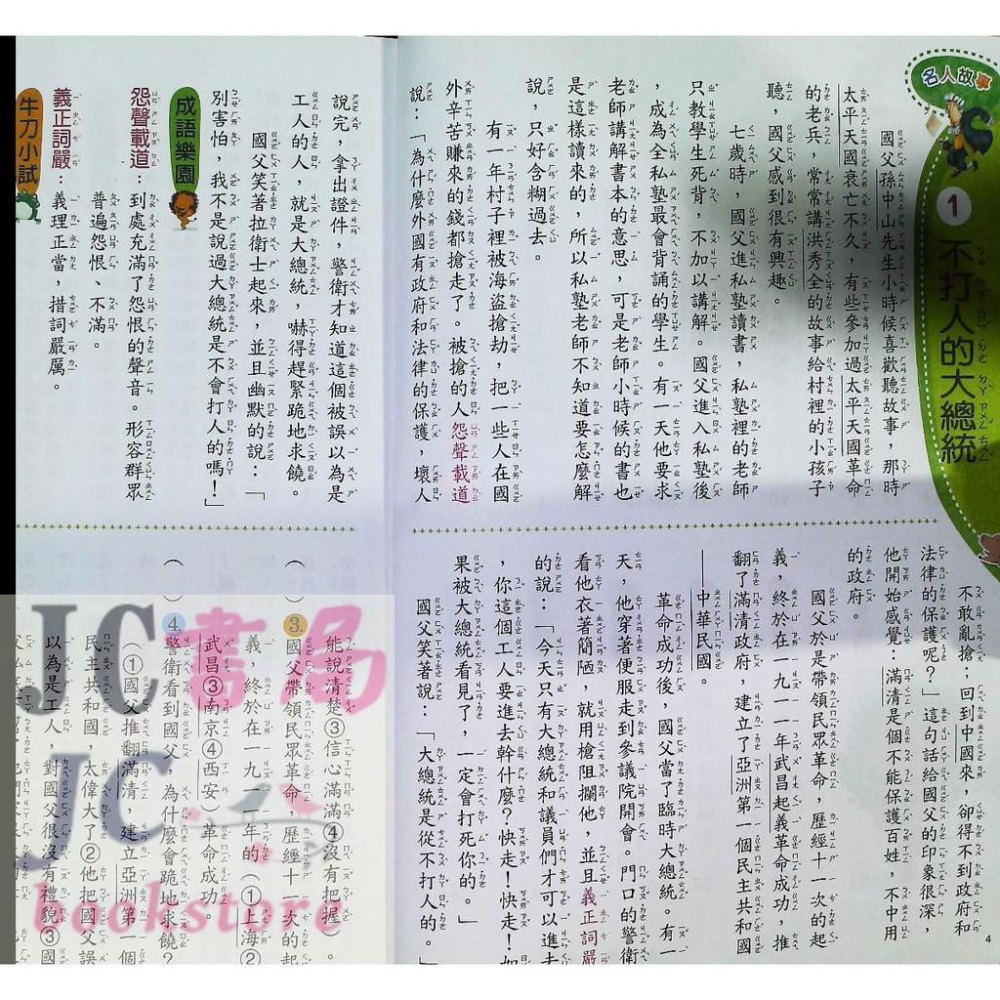 名人故事
1
不打人的大總統
國父孫中山先生小時候喜歡聽故事，那時
太平天國衰亡不久，有些參加過太平天國革命
的老兵，常常講洪秀全的故事給村裡的小孩子
聽，國父感到很有興趣。
七歲時，國父進私塾讀書，私塾裡的老師
只教學生死背，不加以講解。國父進入私塾後
，成為全私塾最會背誦的學生。有一天他要求
老師講解書本的意思，可是老師小時候的書也
是這樣讀來的，所以私塾老師不知道要怎麼解
說，只好含糊過去。
有一年村子裡被海盜搶劫，把一些人在國
外辛苦賺來的錢都搶走了。被搶的人怨聲載道
說：「為什麼外國有政府和法律的保護，壞人
不敢亂搶；回到中國來，卻得不到政府和
法律的保護呢？」這句話給國父的印象很深，
他開始感覺：滿清是個不能保護百姓，不中用
的政府。
國父於是帶領民眾革命，歷經十一次的起
義，終於在一九一一年武昌起義革命成功，推
翻了滿清政府，建立了亞洲第一個民主共和國
——中華民國。
革命成功後，國父當了臨時大總統。有一
天，他穿著便服走到參議院開會。門口的警衛
看他衣著簡陋，就用槍阻攔他，並且義正詞嚴
的說：「今天只有大總統和議員們才可以進去
，你這個工人要進去幹什麼？快走！快走！如
果被大總統看見了，一定會打死你的。」
國父笑著說：「大總統是從不打人的。
4
說完，拿出證件，警衛才知道這個被誤以為是
工人的人，就是大總統，嚇得趕緊跪地求饒。
國父笑著拉衛士起來，並且幽默的說：「
別害怕，我不是說過大總統是不會打人的嗎！」
成語樂園
怨聲載道：到處充滿了怨恨的聲音。形容群眾
普遍怨恨、不滿。
義正詞嚴：義理正當，措詞嚴厲。
牛刀小試
能說清楚③信心滿滿④沒有把握
（ ）3.國父帶領民眾革命，歷經十一次的起
義，終於在一九一一年的（①上海②
武昌③南京④西安）革命成功。
（ ）4.警衛看到國父，為什麼會跪地求饒？
（①國父推翻滿清，建立亞洲第一個
民主共和國，太偉大了②他把國父誤
以為是工人，對國父很沒有禮貌③國
JC書局
JC.
bookstore